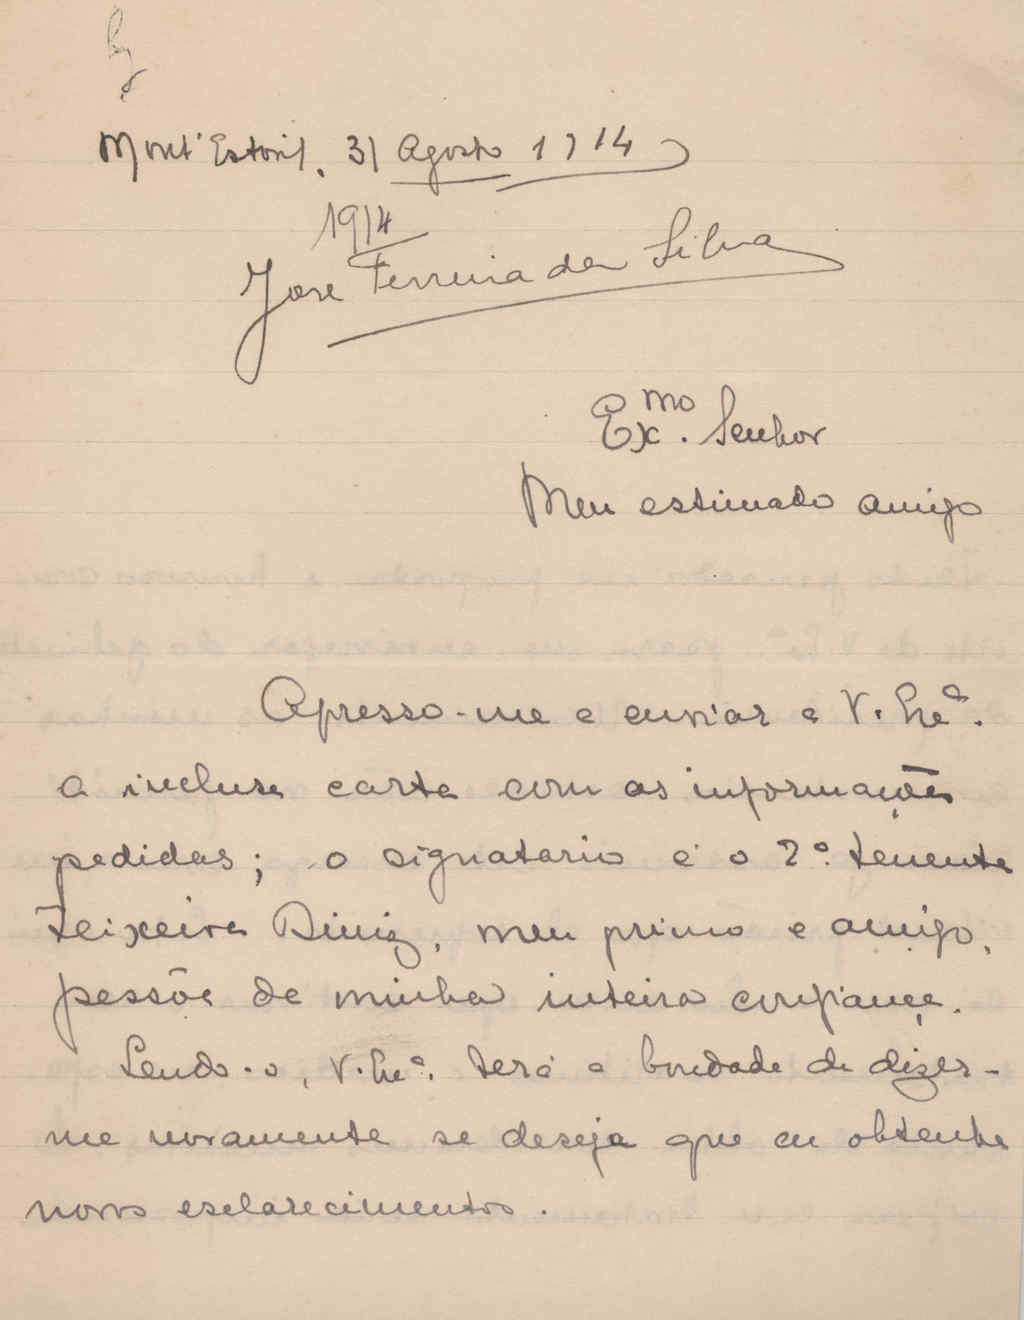 Mont'Estoril, 31 Agosto 1914
1914
José Ferreira da Silva
Ex.mo Senhor
Meu estimado amigo
Apresso-me a enviar a V. Exª.
a inclusa carta com as informações
pedidas; o signatario é o 2º. tenente
Teixeira Diniz, meu primo e amigo,
pessôa de minha inteira confiança.
Lendo-o, V. Exª. terá a bondade de dizer-
me novamente se deseja que eu obtenha
novos esclarecimentos.